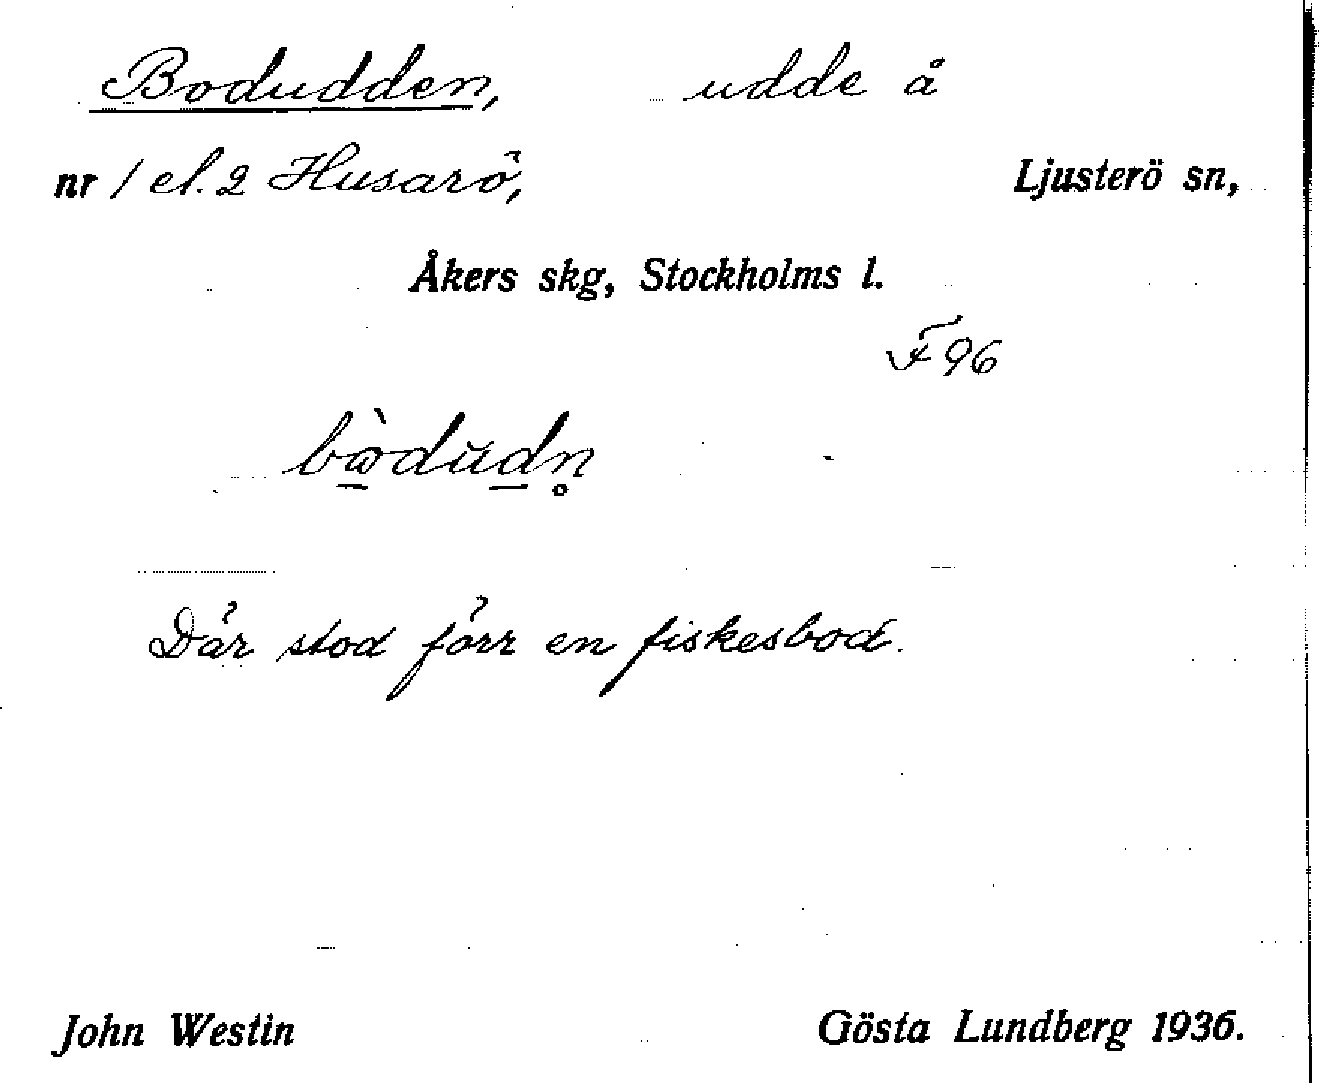 Bodudden, udde å
nr 1 el. 2 Husarö, Ljusterö sn,
Åkers skg, Stockholms l.
F 96
Där stod förr en fiskesbod.
John Westin Gösta Lundberg 1936.